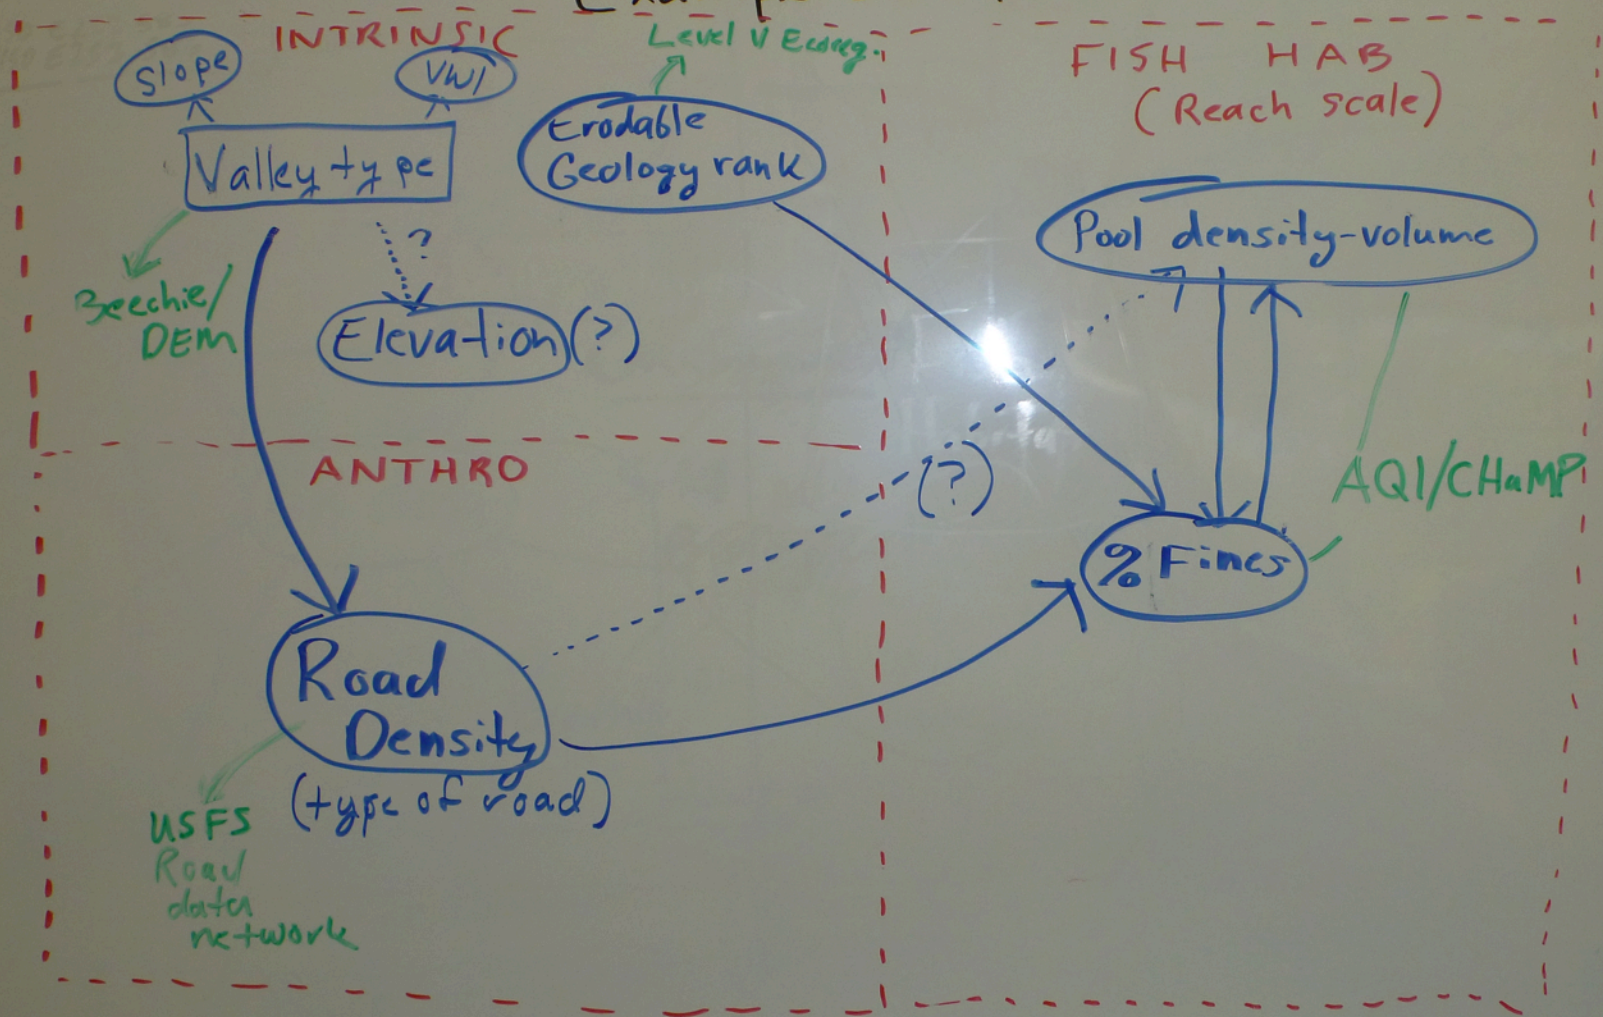 INTRINSIC
Slope
VWI
Level V Ecoreg.
Erodable
Geology rank
Valley type
?
Beechie/
DEM
Elevation (?)
FISH HAB
(Reach scale)
Pool density-volume
ANTHRO
(?)
AQI/CHaMP
% Fines
Road
Density
(type of road)
USFS
Road
data
network